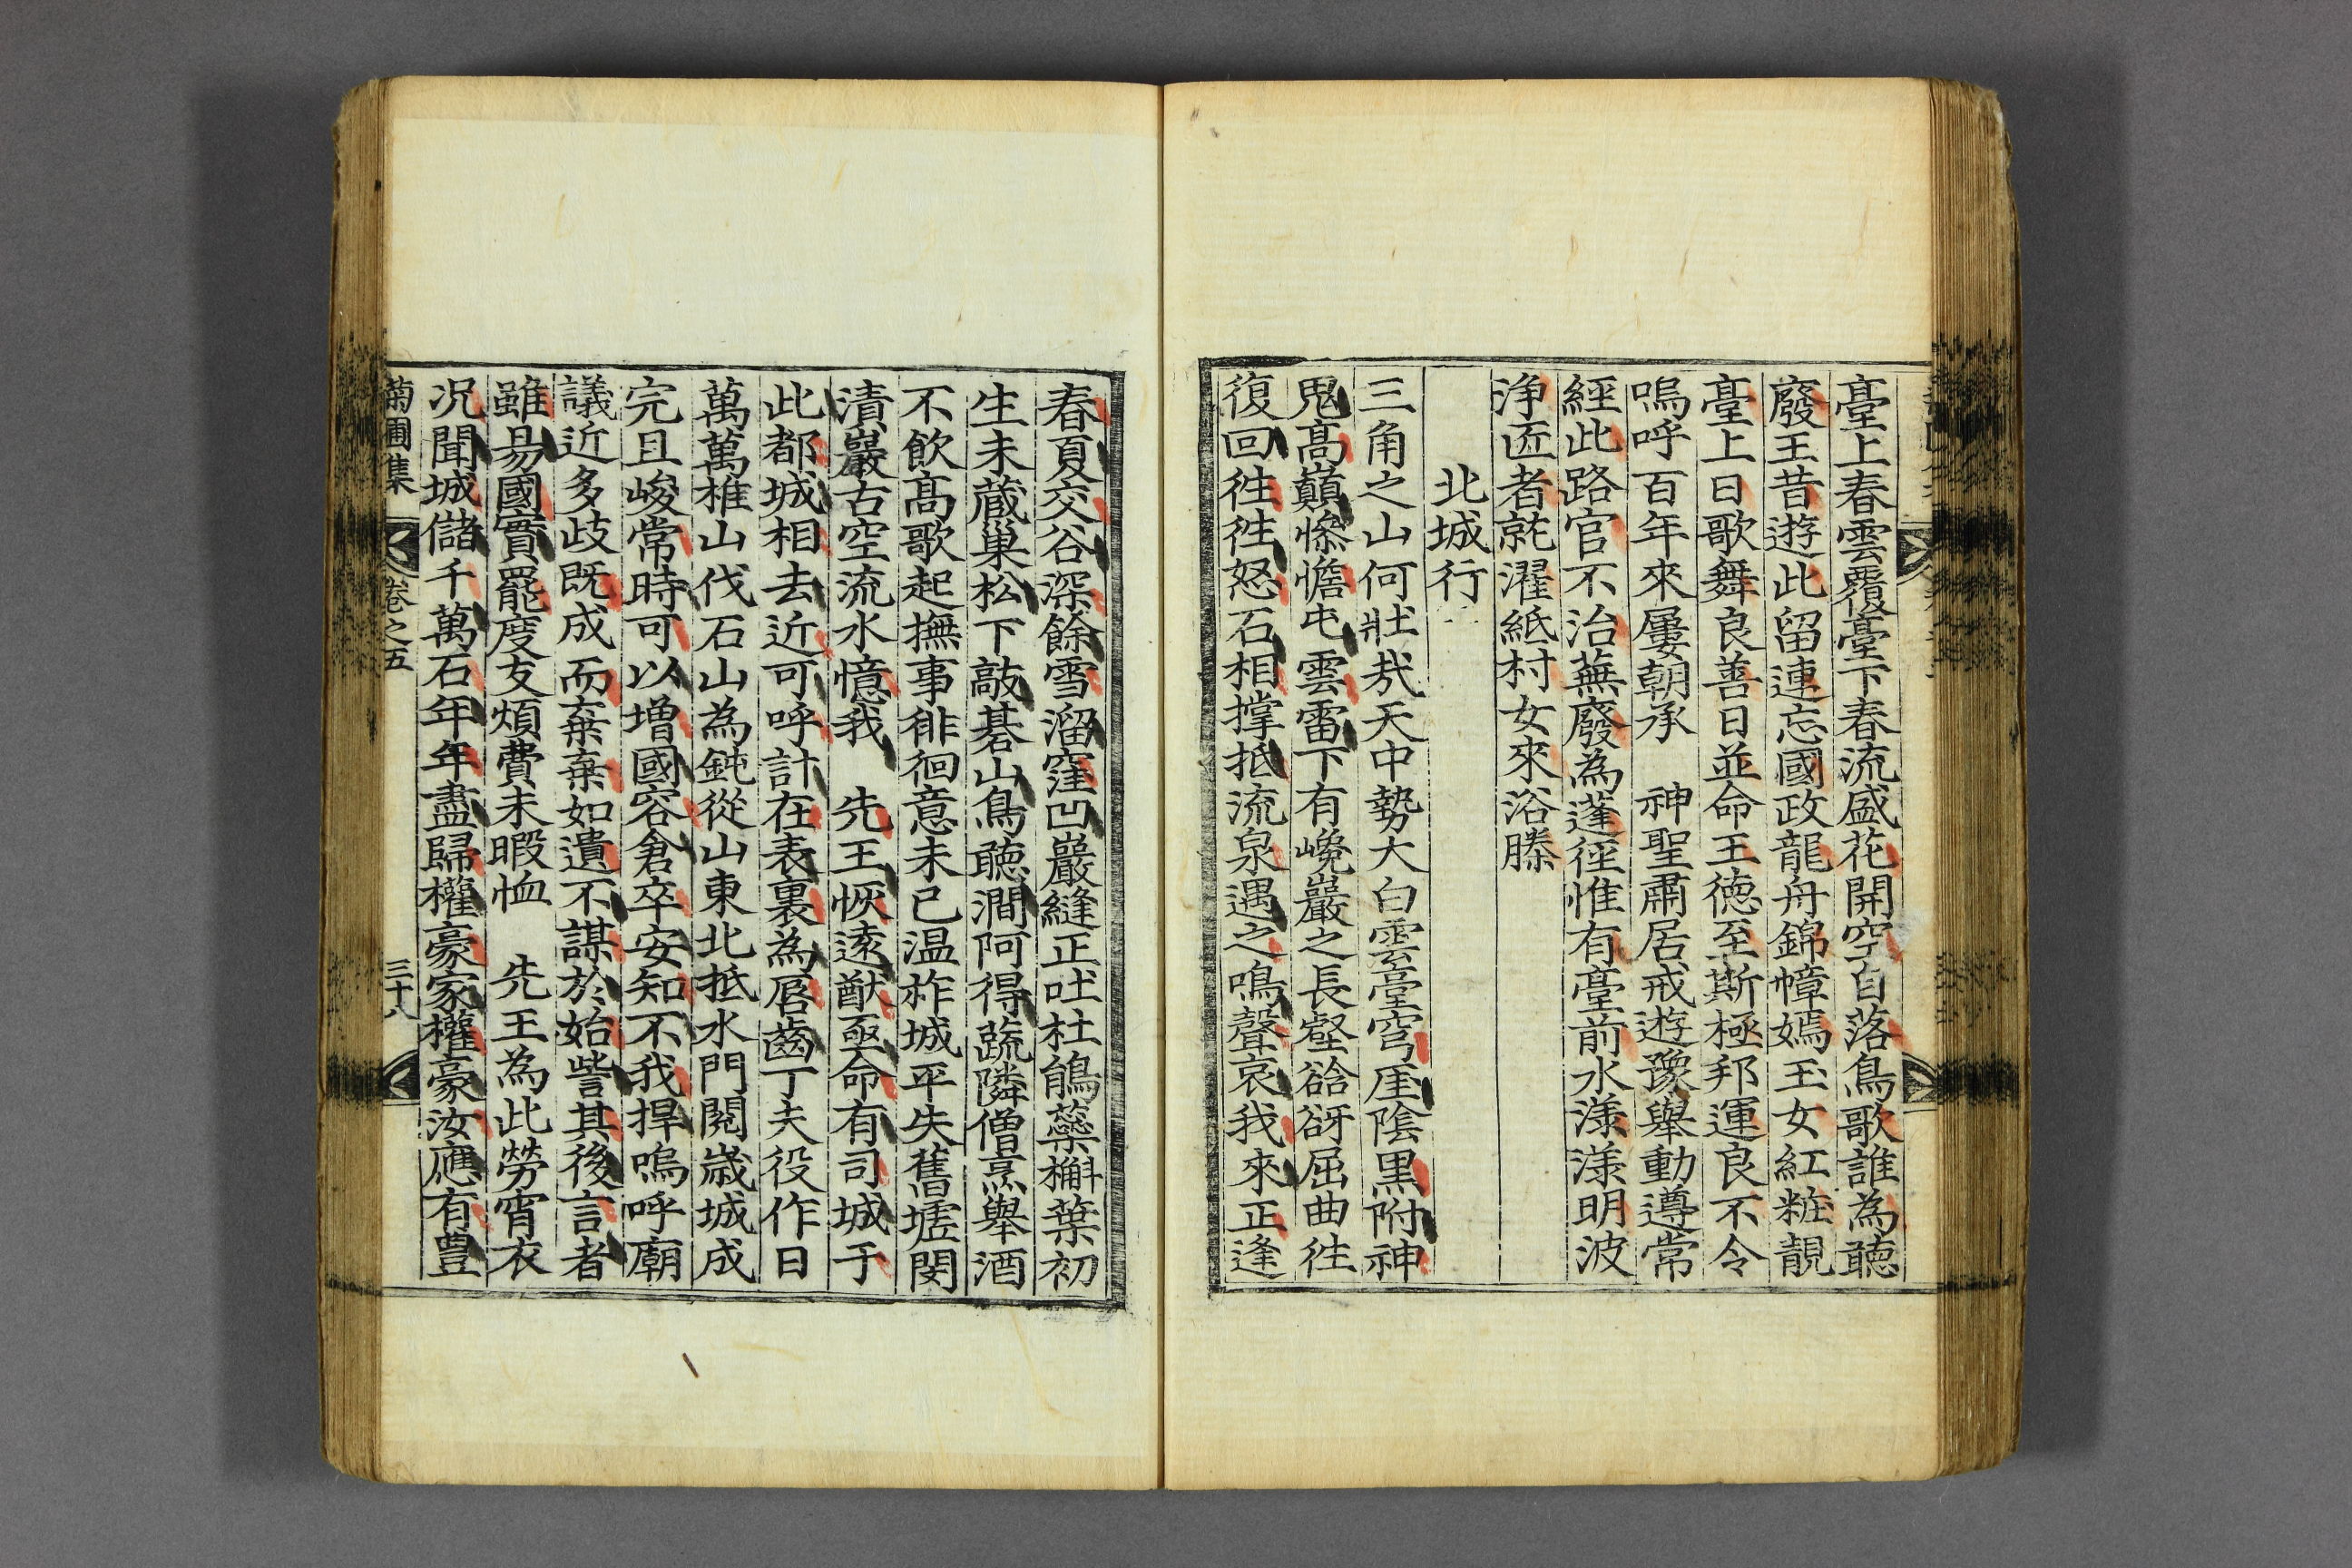 臺上春雲覆臺下春流盛花開空自落鳥歌誰為聽
廢王昔遊此留連忘國政龍舟錦幛嫣玉女紅粧靚
臺上日歌舞良善日並命王德至斯極邦運良不令
嗚呼百年來屢朝承　神聖肅居戒遊豫舉動遵常
經此路官不治蕪廢為蓬徑惟有臺前水漾漾明波
淨匠者就濯紙村女來浴滕
北城行
三角之山何壯㢤天中勢大白雲臺穹厓陰黑附神
鬼高巔慘憺屯雲雷下有巉巖之長壑谽谺屈曲徃
復回徃徃怒石相撑抵流泉遇之鳴聲哀我來正逢
春夏交谷深餘雪溜窪凹巖縫正吐杜鵑蘂槲葉初
生未蔵巢松下敲碁山鳥聽澗阿得蔬隣僧烹舉酒
不飲高歌起撫事徘徊意未已温祚城平失舊墟閔
漬巖古空流水憶我　先王恢遠猷亟命有司城于
此都城相去近可呼計在表裏為唇齒丁夫役作日
萬萬椎山伐石山為鈍從山東北抵水門閱歲城成
完且峻常時可以增國容倉卒安知不我捍嗚呼廟
議近多歧既成而棄棄如遺不謀於始訾其後言者
雖易國實罷度支煩費未暇恤　先王為此勞宵衣
况聞城儲千萬石年年盡歸權豪家權豪汝應有豊
菊圃集　卷之五　三十八